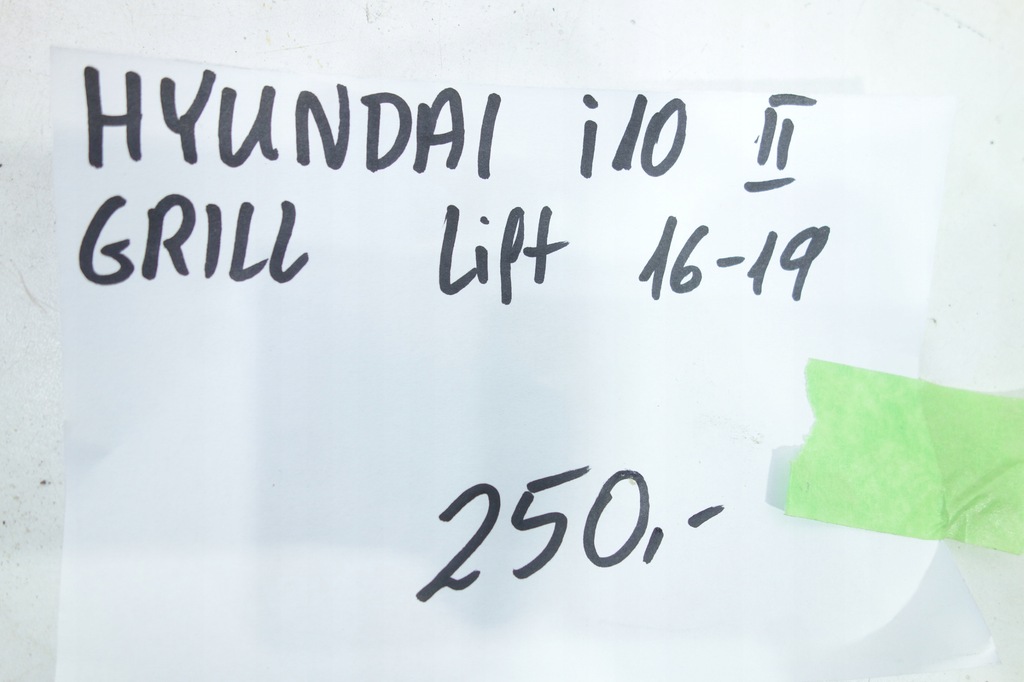 HYUNDAI i10 II
GRILL Lift 16-19
250,-